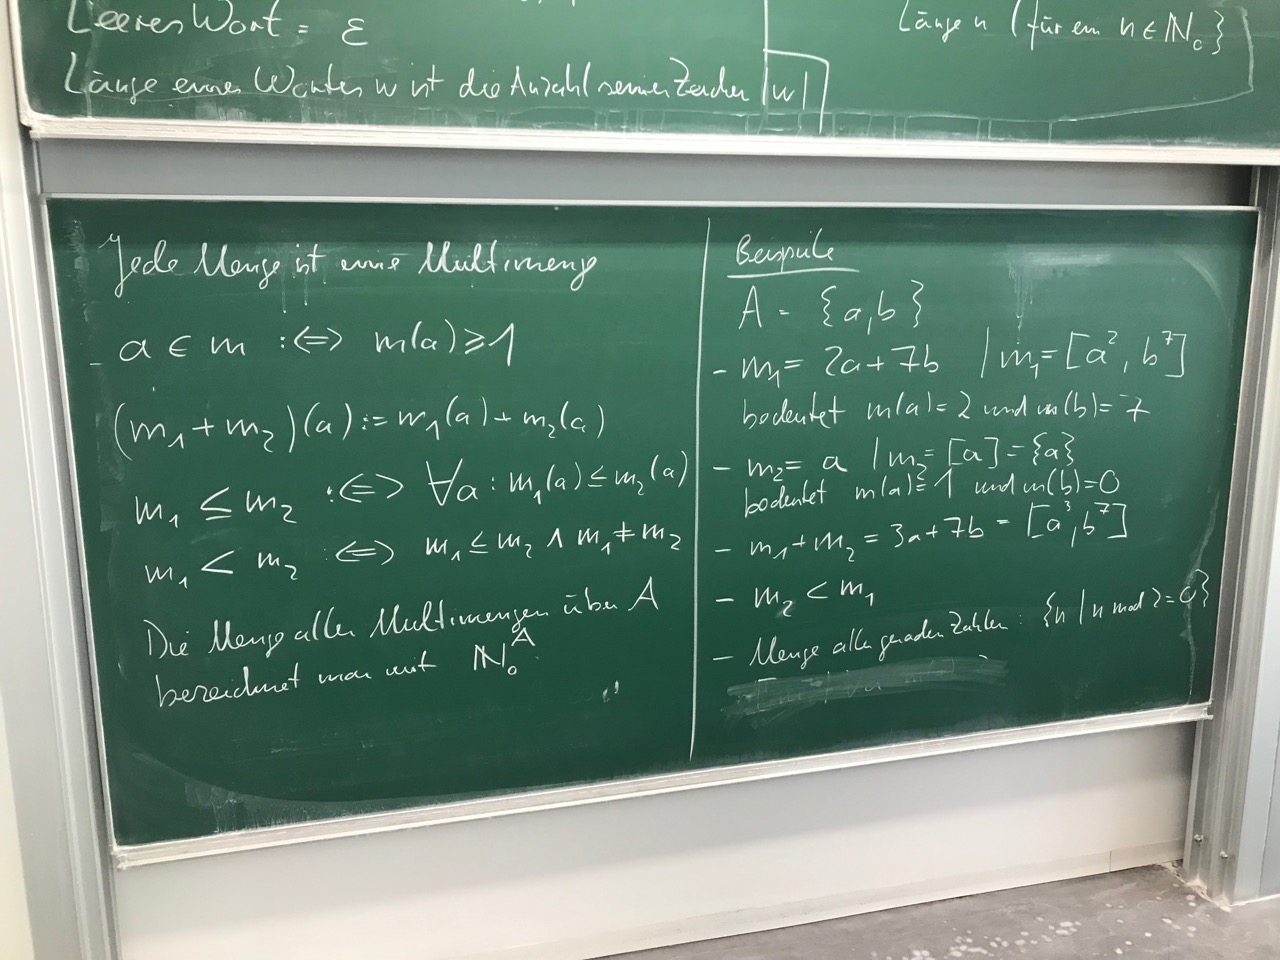 Leeres Wort = ε
Länge eines Wortes w ist die Anzahl seiner Zeichen |w|
Länge n (für ein n ∈ ℕ₀}
Jede Menge ist eine Multimenge
- a ∈ m :⇔ m(a) ≥ 1
(m₁ + m₂)(a) := m₁(a) + m₂(a)
m₁ ≤ m₂ :⇔ ∀a : m₁(a) ≤ m₂(a)
m₁ < m₂ ⇔ m₁ ≤ m₂ ∧ m₁ ≠ m₂
Die Menge aller Multimengen über A
bezeichnet man mit ℕ₀ᴬ
Beispiele
A = {a,b}
- m₁ = 2a + 7b | m₁ = [a², b⁷]
bedeutet m(a) = 2 und m(b) = 7
- m₂ = a | m₂ = [a] = {a}
bedeutet m(a) = 1 und m(b) = 0
- m₁ + m₂ = 3a + 7b = [a³, b⁷]
- m₂ < m₁
- Menge aller geraden Zahlen : {n | n mod 2 = 0}